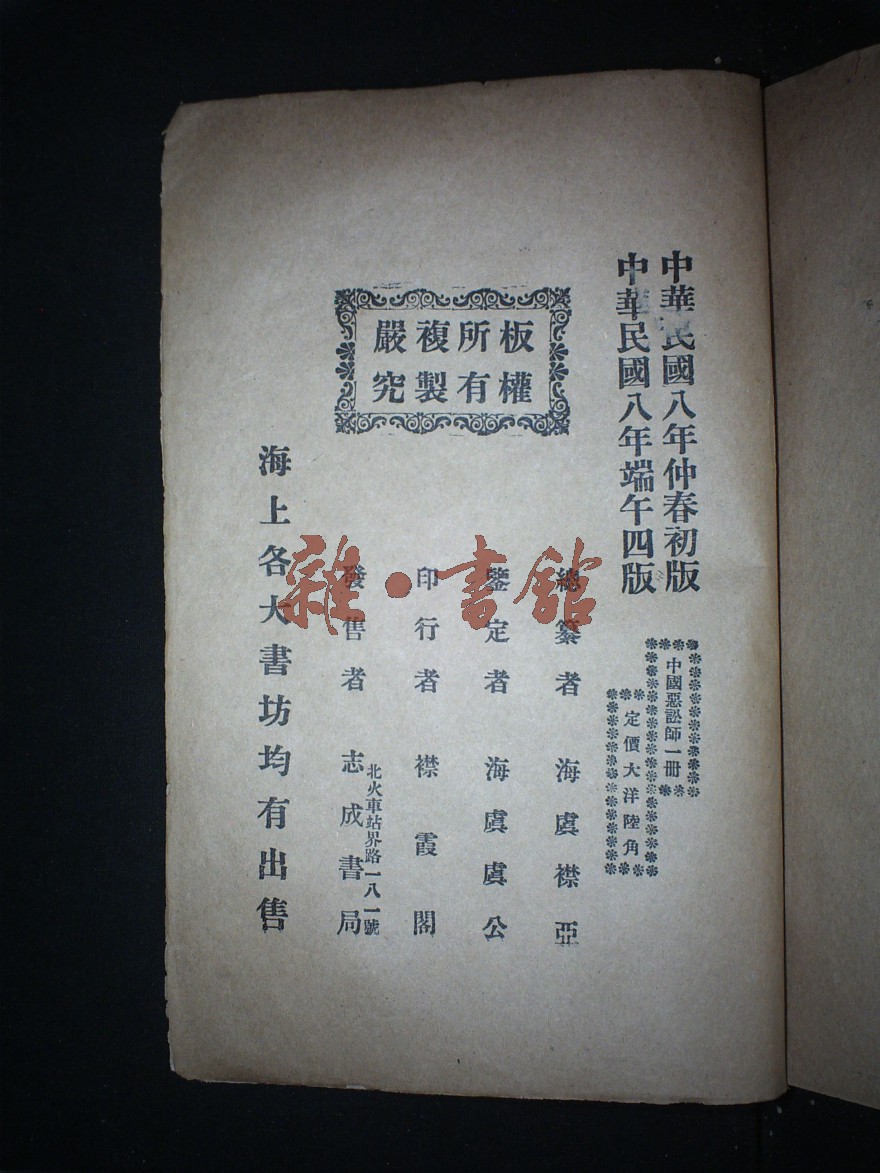 中華民國八年仲春初版
中華民國八年端午四版
中國惡訟師一冊
定價大洋陸角
板權
所有
複製
嚴究
總纂者 海虞襟亞
鑒定者 海虞虞公
印行者 襟霞閣
北火車站界路一八一號
發售者 志成書局
海上各大書坊均有出售
雜·書館